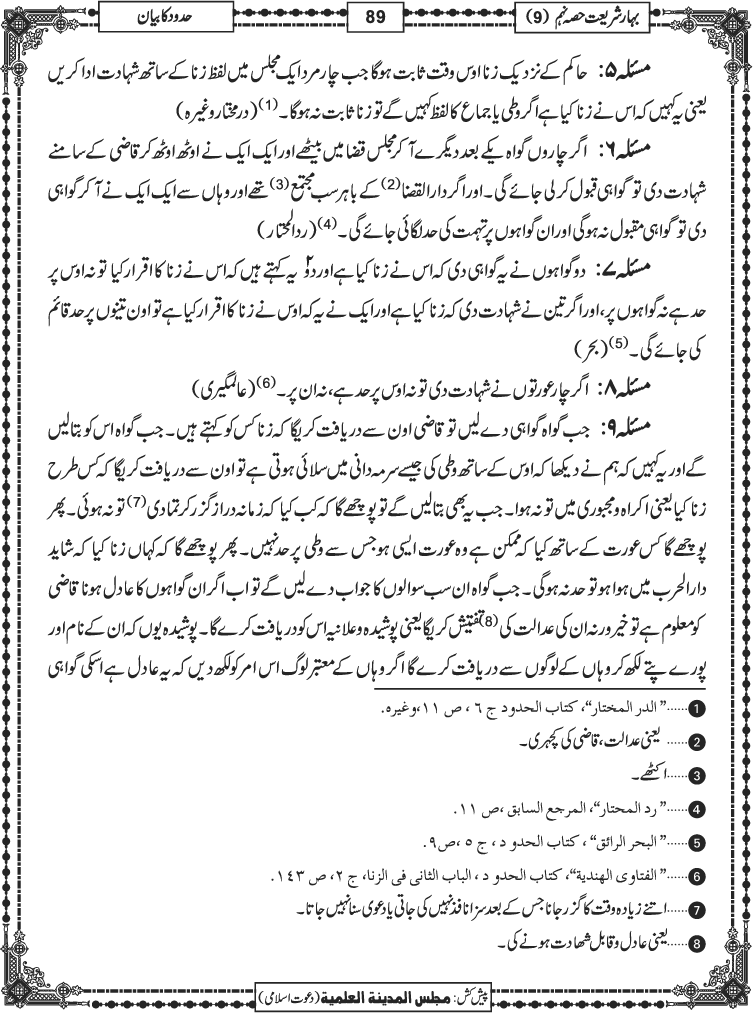 بہارِ شریعت حصہ نہم (9)
89
حدود کا بیان
مسئلہ ۵: حاکم کے نزدیک زنا اوس وقت ثابت ہوگا جب چار مرد ایک مجلس میں لفظ زنا کے ساتھ شہادت ادا کریں
یعنی یہ کہیں کہ اس نے زنا کیا ہے اگر وطی یا جماع کا لفظ کہیں گے تو زنا ثابت نہ ہوگا۔(1) (درمختار وغیرہ)
مسئلہ ۶: اگر چاروں گواہ یکے بعد دیگرے آکر مجلس قضا میں بیٹھے اور ایک ایک نے اوٹھ اوٹھ کر قاضی کے سامنے
شہادت دی تو گواہی قبول کرلی جائے گی۔ اور اگر دارالقضا(2) کے باہر سب مجتمع(3) تھے اور وہاں سے ایک ایک نے آکر گواہی
دی تو گواہی مقبول نہ ہوگی اور ان گواہوں پر تہمت کی حد لگائی جائے گی۔(4) (ردالمحتار)
مسئلہ ۷: دو گواہوں نے یہ گواہی دی کہ اس نے زنا کیا ہے اور دو۲ یہ کہتے ہیں کہ اس نے زنا کا اقرار کیا تو نہ اوس پر
حد ہے نہ گواہوں پر، اور اگر تین نے شہادت دی کہ زنا کیا ہے اور ایک نے یہ کہ اوس نے زنا کا اقرار کیا ہے تو اون تینوں پر حد قائم
کی جائے گی۔(5) (بحر)
مسئلہ ۸: اگر چار عورتوں نے شہادت دی تو نہ اوس پر حد ہے، نہ ان پر۔(6) (عالمگیری)
مسئلہ ۹: جب گواہ گواہی دے لیں تو قاضی اون سے دریافت کریگا کہ زنا کس کو کہتے ہیں۔ جب گواہ اس کو بتالیں
گے اور یہ کہیں کہ ہم نے دیکھا کہ اوس کے ساتھ وطی کی جیسے سرمہ دانی میں سلائی ہوتی ہے تو اون سے دریافت کریگا کہ کس طرح
زنا کیا یعنی اکراہ و مجبوری میں تو نہ ہوا۔ جب یہ بھی بتالیں گے تو پوچھے گا کہ کب کیا کہ زمانہ دراز گزر کر تمادی(7) تو نہ ہوئی۔ پھر
پوچھے گا کس عورت کے ساتھ کیا کہ ممکن ہے وہ عورت ایسی ہو جس سے وطی پر حد نہیں۔ پھر پوچھے گا کہ کہاں زنا کیا کہ شاید
دارالحرب میں ہوا ہو تو حد نہ ہوگی۔ جب گواہ ان سب سوالوں کا جواب دے لیں گے تو اب اگر ان گواہوں کا عادل ہونا قاضی
کو معلوم ہے تو خیر ورنہ ان کی عدالت کی(8) تفتیش کریگا یعنی پوشیدہ و علانیہ اس کو دریافت کرے گا۔ پوشیدہ یوں کہ ان کے نام اور
پورے پتے لکھ کر وہاں کے لوگوں سے دریافت کرے گا اگر وہاں کے معتبر لوگ اس امر کو لکھ دیں کہ یہ عادل ہے اسکی گواہی
1 ......"الدر المختار"، کتاب الحدود ج ۶ ، ص ۱۱،وغیرہ.
2 ...... یعنی عدالت، قاضی کی کچہری۔
3 ......اکٹھے۔
4 ......"رد المحتار"، المرجع السابق ،ص ۱۱.
5 ......"البحر الرائق" ، کتاب الحدود ، ج ۵ ،ص۹.
6 ......"الفتاوی الهندیة"، کتاب الحدود ، الباب الثانی فی الزنا، ج ۲، ص ۱۴۳.
7 ......اتنے زیادہ وقت کا گزر جانا جس کے بعد سزا نافذ نہیں کی جاتی یا دعویٰ سنا نہیں جاتا۔
8 ......یعنی عادل و قابل شہادت ہونے کی۔
پیش کش: مجلس المدینة العلمیة (دعوت اسلامی)